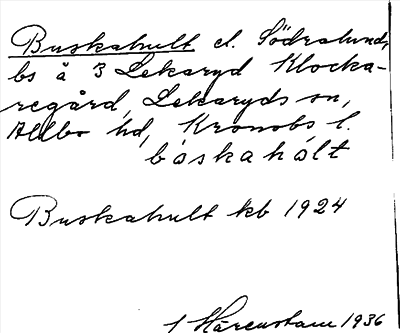 Buskahult el. Södralund,
bs å 3 Lekaryd Klocka-
regård, Lekaryds sn,
Allbo hd, Kronobs l.
båskahòlt
Buskahult kb 1924
1 Hårenstam 1936